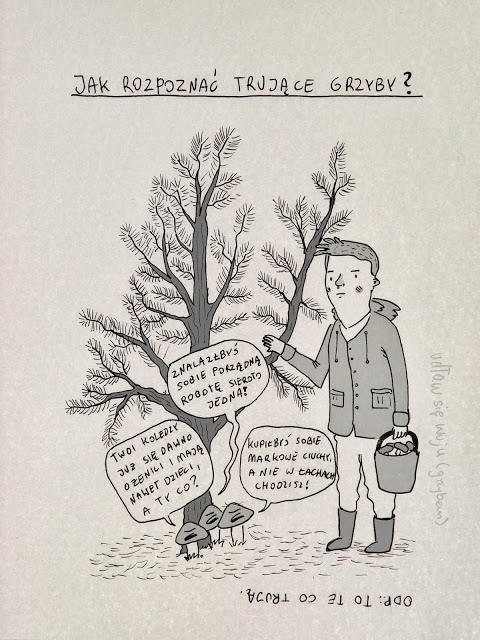 JAK ROZPOZNAĆ TRUJĄCE GRZYBY?
ZNALAZŁBYŚ
SOBIE PORZĄDNĄ
ROBOTĘ SIEROTO
JEDNA!
TWOI KOLEDZY
JUŻ SIĘ DAWNO
OŻENILI I MAJĄ
NAWET DZIECI,
A TY CO?
KUPIŁBYŚ SOBIE
MARKOWE CIUCHY,
A NIE W ŁACHACH
CHODZISZ!
ODP: TO TE CO TRUJĄ.